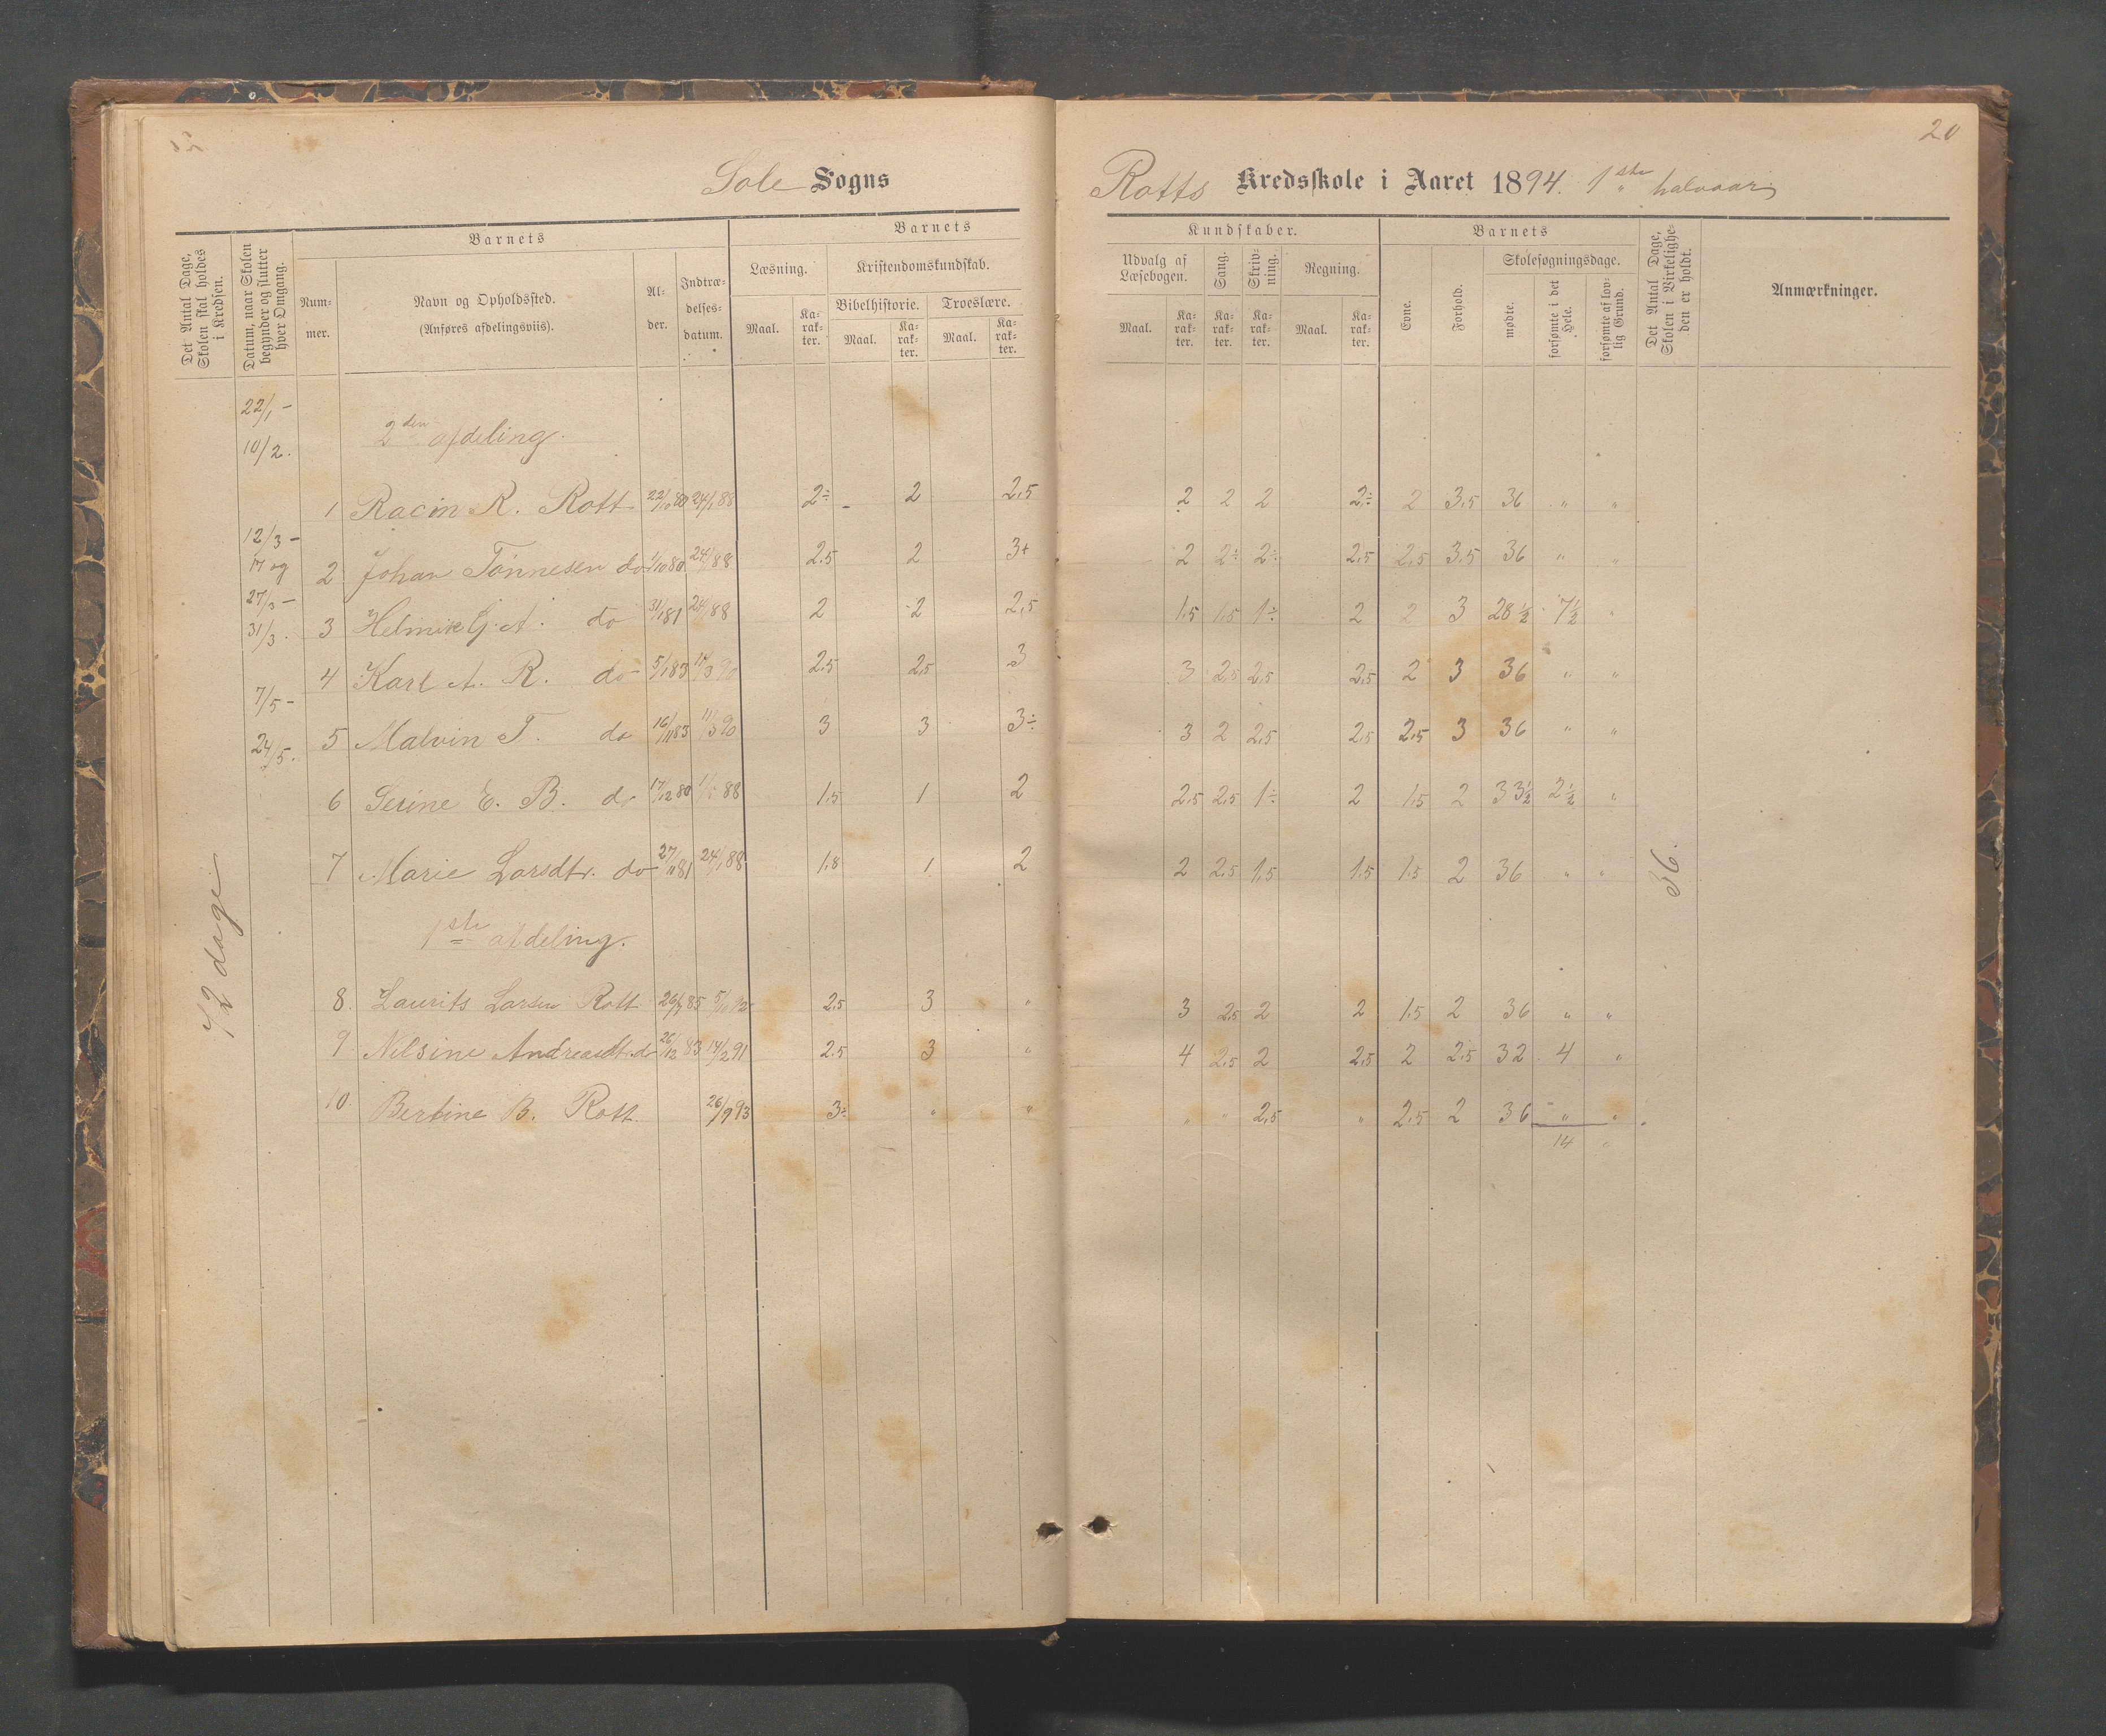 20
Sole Sogns
Rotts Kredsskole i Aaret 1894. 1ste halvaar
Det Antal Dage, Skolen skal holdes i Kredsen.
Datum, naar Skolen begynder og slutter hver Omgang.
Barnets
Nummer.
Navn og Opholdssted.
(Anføres afdelingsviis).
Alder.
Indtrædelsesdatum.
Barnets
Læsning.
Kristendomskundskab.
Bibelhistorie. Troeslære.
Maal. Karakter. Maal. Karakter. Maal. Karakter.
Kundskaber.
Udvalg af Læsebogen. Sang. Skrivning. Regning.
Maal. Karakter. Karakter. Karakter. Maal. Karakter.
Barnets
Evne. Forhold.
Skolesøgningsdage.
mødte. forsømte i det Hele. forsømte af lovlig Grund.
Det Antal Dage, Skolen i Virkeligheden er holdt.
Anmærkninger.
22/1 –
10/2.
12/3 –
17 og
27/3 –
31/3.
7/5 –
24/5.
72 dage
2den afdeling.
1 Racin R. Rott 22/10 80 24/1 88 2÷ 2 2,5 2 2 2 2÷ 2 3,5 36 „ „
2 Johan Tønnesen do 1/10 80 24/1 88 2,5 2 3+ 2 2÷ 2÷ 2,5 2,5 3,5 36 „ „
3 Helmik G. A. do 31/1 81 24/1 88 2 2 2,5 1,5 1,5 1÷ 2 2 3 28½ 7½ „
4 Karl A. R. do 5/1 83 17/3 90 2,5 2,5 3 3 2,5 2,5 2,5 2 3 36 „ „
5 Malvin T. do 16/11 83 11/3 90 3 3 3÷ 3 2 2,5 2,5 2,5 3 36 „ „
6 Serine E. B. do 17/12 80 88 1,5 1 2 2,5 2,5 1÷ 2 1,5 2 33½ 2½ „
7 Marie Larsdtr. do 27/11 81 24/1 88 1,8 1 2 2 2,5 1,5 1,5 1,5 2 36 „ „
36.
1ste afdeling.
8. Laurits Larsen Rott 85 92 2,5 3 „ 3 2,5 2 2 1,5 2 36 „ „
9. Nilsine Andreasdt. do 26/12 83 14/2 91 2,5 3 „ 4 2,5 2 2,5 2 2,5 32 4 „
10. Bertine B. Rott. 26/9 93 3÷ „ „ „ „ 2,5 „ 2,5 2 36 „ „
14 „